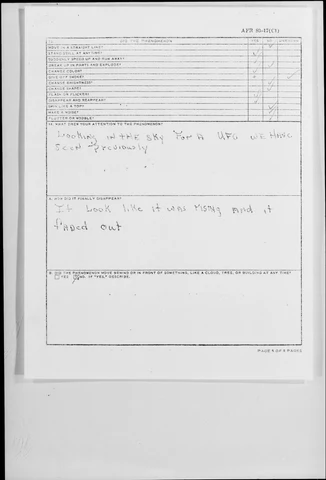 AFR 80-17(C1)
DID THE PHENOMENON
YES
NO
UNKNOWN
MOVE IN A STRAIGHT LINE?
STAND STILL AT ANYTIME?
SUDDENLY SPEED UP AND RUN AWAY?
BREAK UP IN PARTS AND EXPLODE?
CHANGE COLOR?
GIVE OFF SMOKE?
CHANGE BRIGHTNESS?
CHANGE SHAPE?
FLASH OR FLICKER?
DISAPPEAR AND REAPPEAR?
SPIN LIKE A TOP?
MAKE A NOISE?
FLUTTER OR WOBBLE?
WHAT DREW YOUR ATTENTION TO THE PHENOMENON?
LOOKING IN THE SKY FOR A UFO WE HAVE
SEEN previously
A. HOW DID IT FINALLY DISAPPEAR?
It Look like it was and it
Faded out
B. DID THE PHENOMENON MOVE BEHIND OR IN FRONT OF SOMETHING, LIKE A CLOUD, TREE, OR BUILDING AT ANY TIME?
YES NO. IF "YES," DESCRIBE.
PAGE OF PAGES